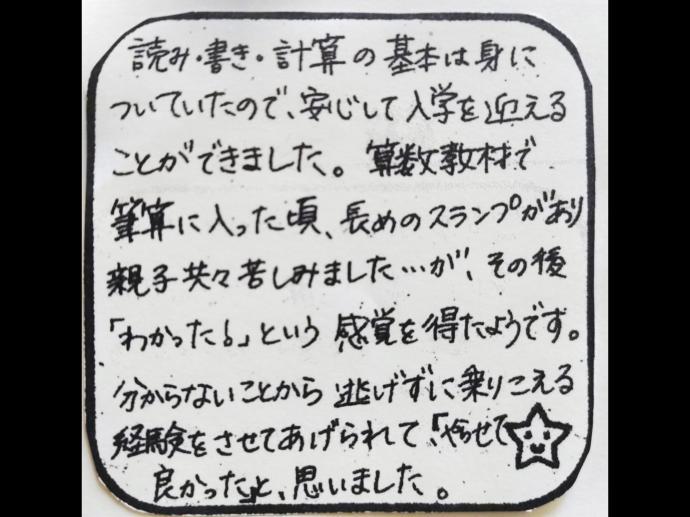 読み・書き・計算の基本は身に
ついていたので、安心して入学を迎える
ことができました。算数教材で
筆算に入った頃、長めのスランプがあり
親子共々苦しみました…が、その後
「わかった！」という感覚を得たようです。
分からないことから逃げずに乗りこえる
経験をさせてあげられて「やらせて
良かった」と、思いました。